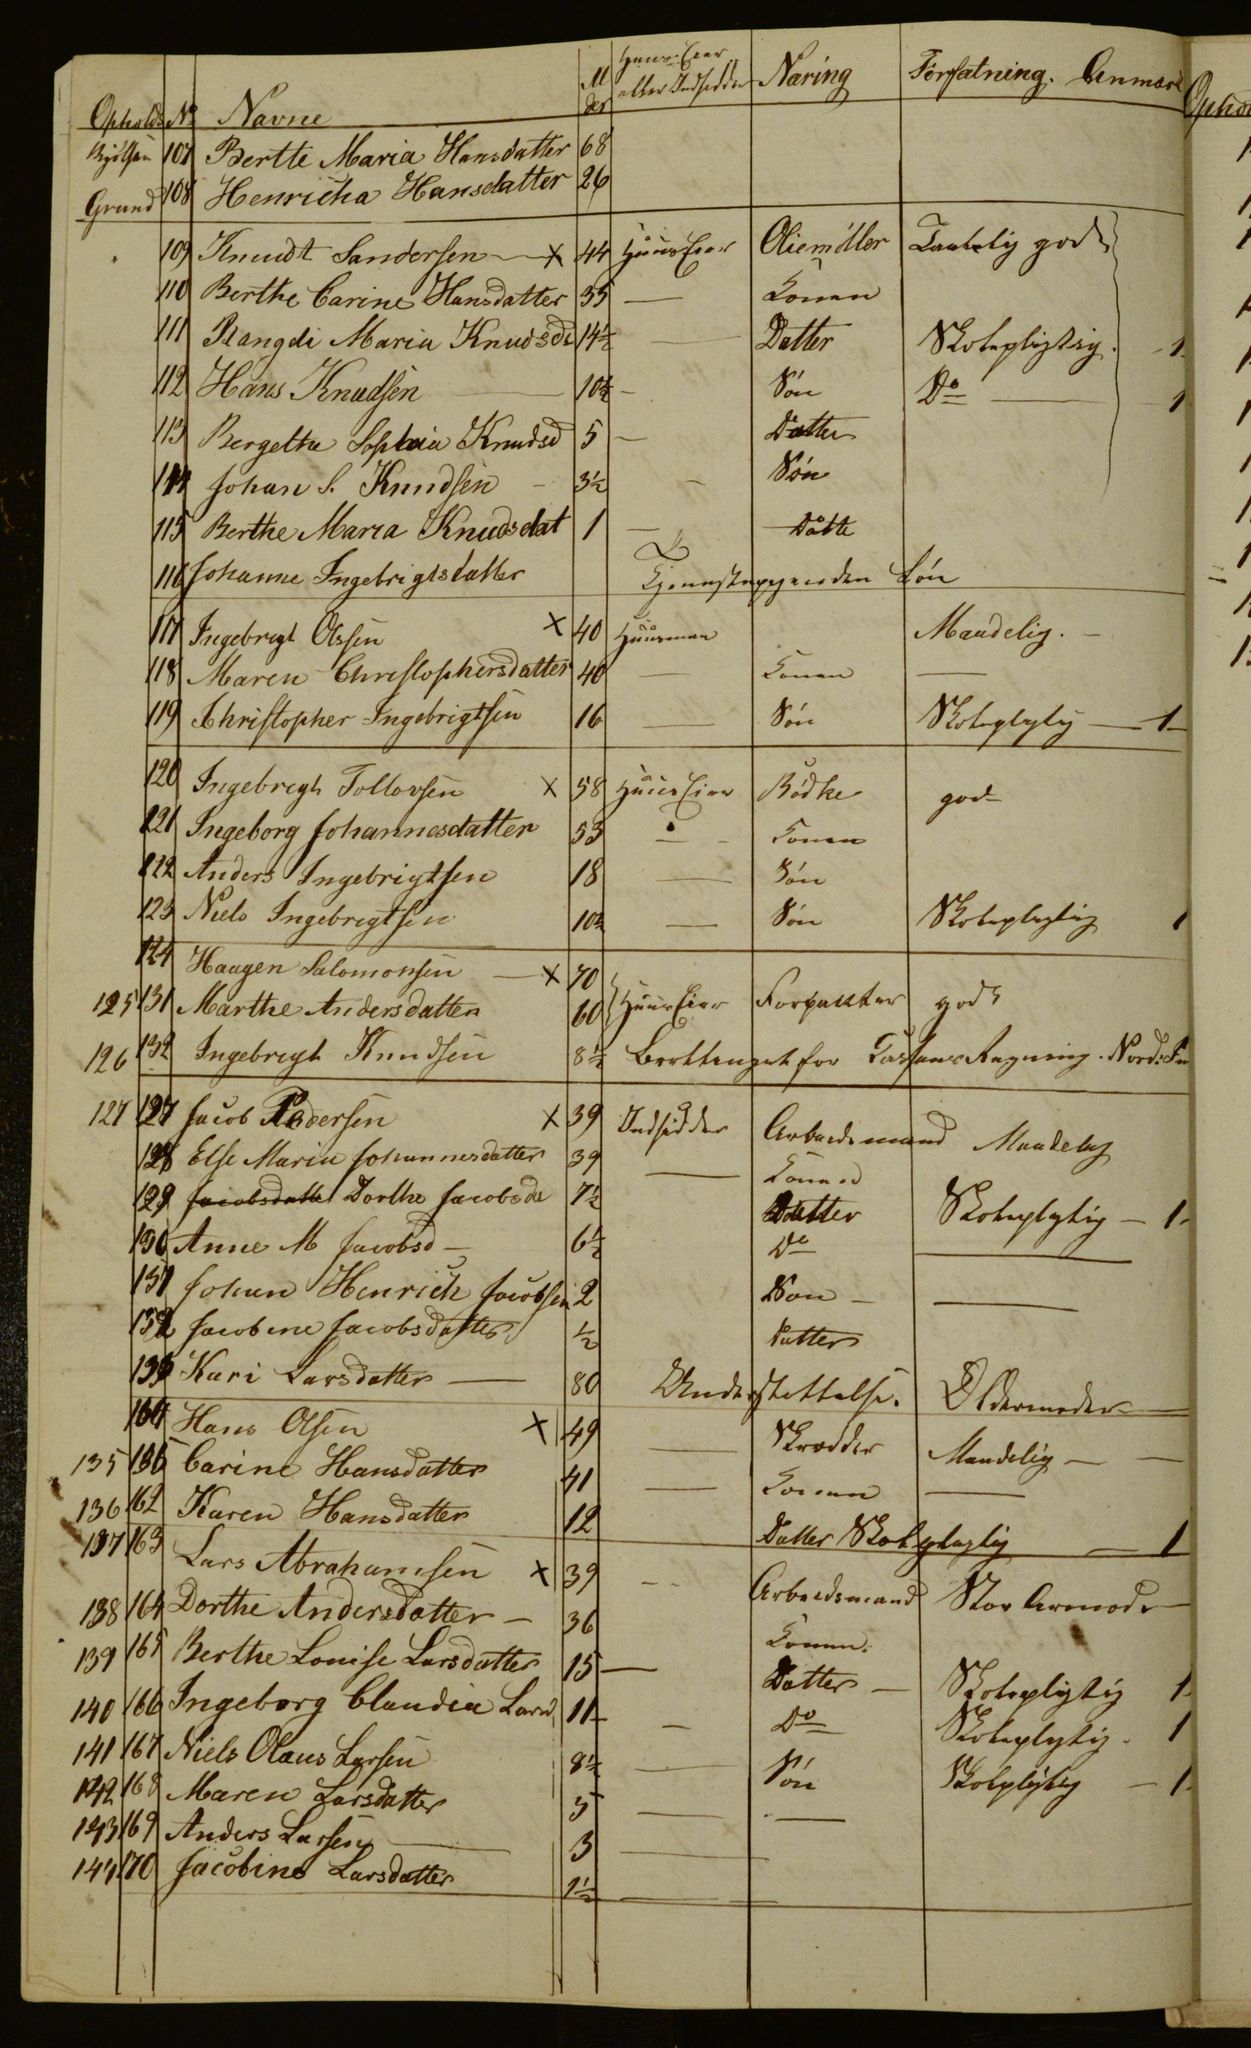 Opholds No Navne Alder Huus-Eier eller Indsidder Næring Forfatning. Anmær Ophol
Bjölsen 107 Berthe Maria Hansdatter 68
Grund 108 Henricha Hansdatter 26
109 Knudt Sandersen x 44 Huus Eier Oliemöller Taalelig god
110 Berthe Carine Hansdatter 35 — Konen
111 Rangdi Maria Knudsdr 14½ — Datter Skolepligtig. 1
112 Hans Knudsen 10½ — Sön Do — 1
113 Bergethe Sophia Knudsd 5 — Datter
114 Johan S. Knudsen 3½ — Sön
115 Berthe Maria Knudsdat 1 — Datte
116 Johanne Ingebrigtsdatter Tjenestepige uden Lön
117 Ingebrigt Olsen x 40 Huusman Maadelig. —
118 Maren Christophersdatter 40 — Konen —
119 Christopher Ingebrigtsen 16 — Sön Skoleplgtig — 1
120 Ingebrigt Tollovsen x 58 Huus Eier Bödke god
121 Ingeborg Johannesdatter 53 — Konen
122 Anders Ingebrigtsen 18 — Sön
123 Niels Ingebrigtsen 10½ — Sön Skoleplegtig 1
124 Haagen Salomonsen — x 70
125 131 Marthe Andersdatter 60 Huus Eier Forpakter god
126 132 Ingebrigt Knudsen 8½ Bortsat for Kassens Regning. Nord:
127 127 Jacob Pedersen x 39 Indsidder Arbeidsmand Maadelig
128 Else Maria Johannesdatter 39 — Konen
129 Jacobsdatte Dorthe Jacobsda 7½ Datter Skoleplgtig — 1
130 Anne M Jacobsd — 6½ Do —
131 Johan Henrich Jacobsen 2 Sön — —
132 Jacobine Jacobsdatter ½ Datter
133 Kari Larsdatter — 80 Understöttelse. Oldemoder —
Hans Olsen x 49 — Skrædder Maadelig —
135 Carine Hansdatter 41 — Konen —
136 162 Karen Hansdatter 12 Datter Skolplegtig — 1
137 163 Lars Abrahamsen x 39 — Arbeidsmand Stor Armod
138 164 Dorthe Andersdatter — 36 Konen.
139 165 Berthe Louise Larsdatter 15 — Datter — Skolepligtig 1
140 166 Ingeborg Claudia Larsd 11 — Do Skoleplegtig. 1
141 167 Niels Olaus Larsen 8½ — Sön Skolpligtig — 1
142 168 Maren Larsdatter 5 — —
143 169 Anders Larsen — 3 —
144 170 Jacobine Larsdatter 1½ —